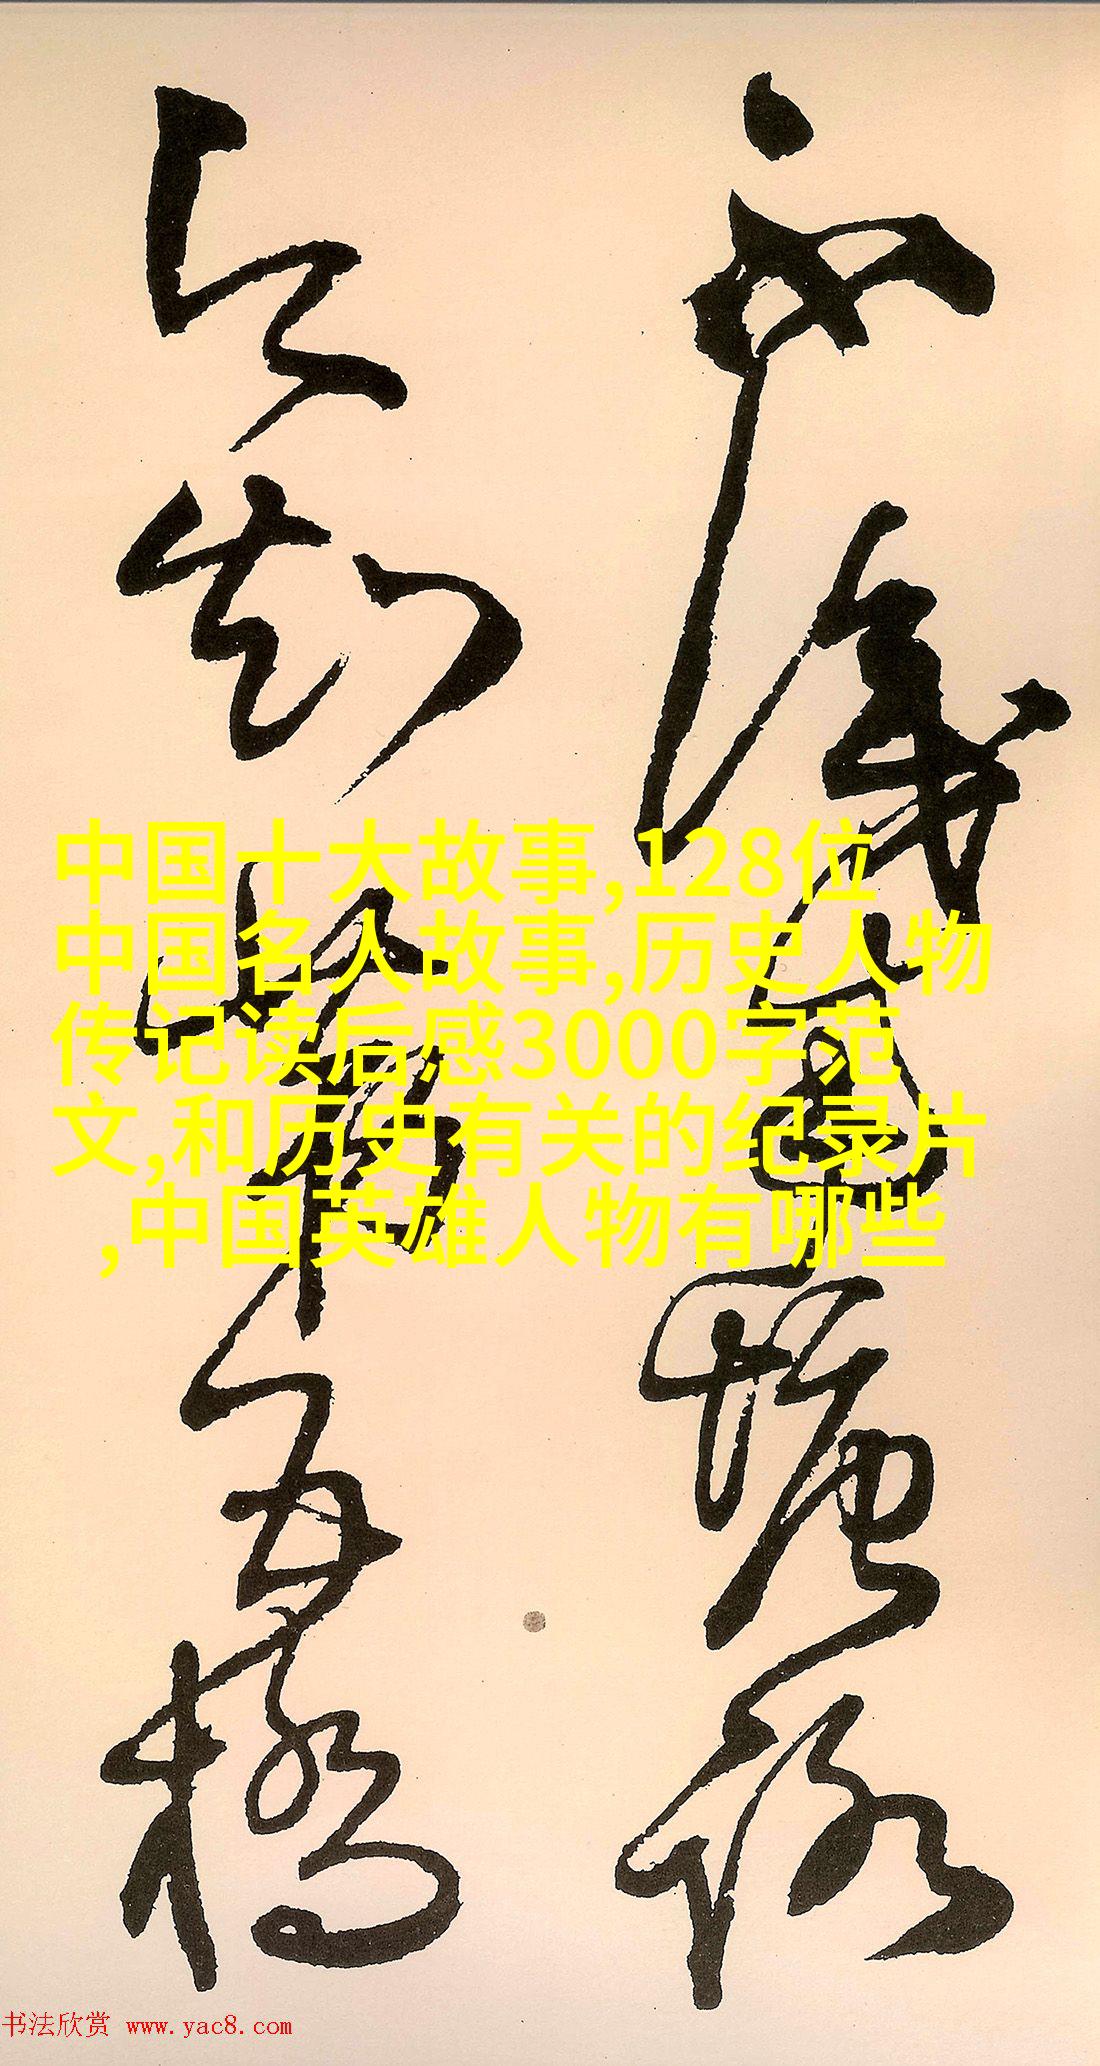 不識南塘路
今知第五橋
中国十大故事,128位
中国名人故事,历史人物
传记读后感3000字范
文,和历史有关的纪录片
,中国英雄人物有哪些
书法欣赏 www.yac8.com